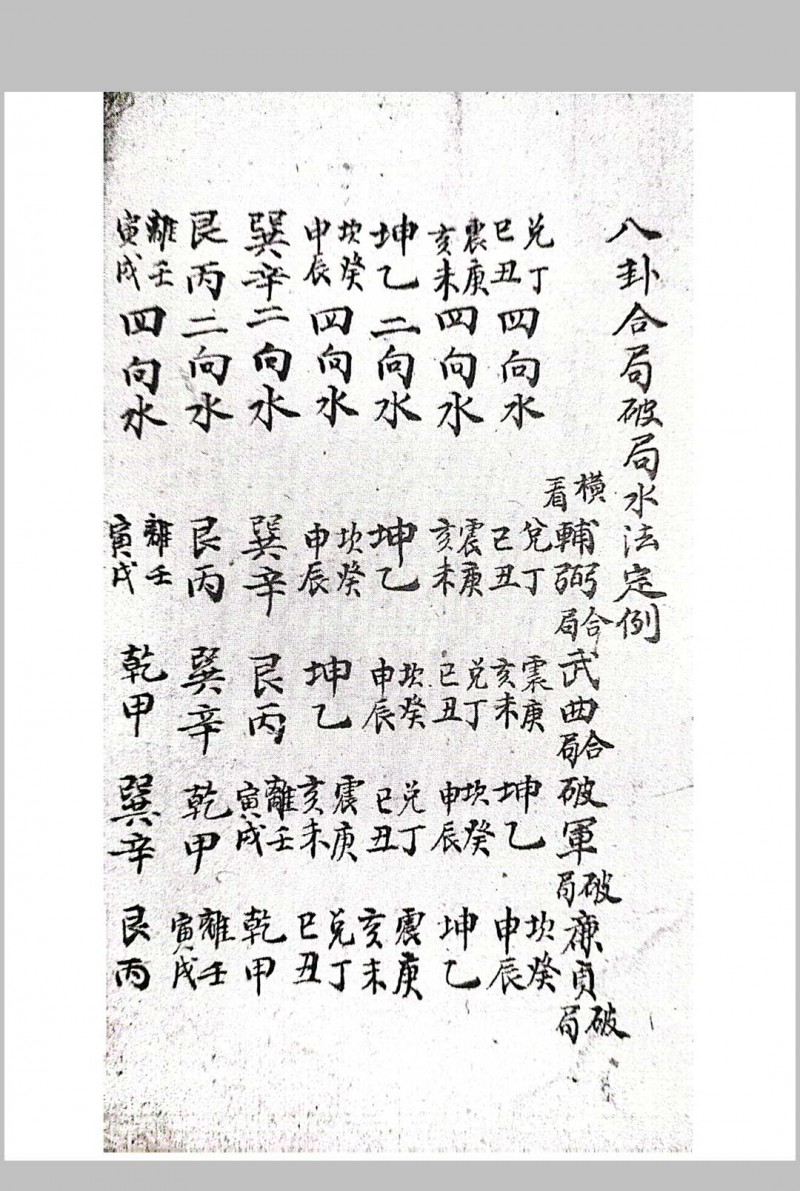 八卦合局破局水法定例
橫看 輔弼合局 武曲合局 破軍破局 廉貞破局
兌丁巳丑四向水 兌丁巳丑 震庚亥未 坤乙 坎癸申辰
震庚亥未四向水 震庚亥未 兌丁巳丑 坎癸申辰 坤乙
坤乙二向水 坤乙 坎癸申辰 兌丁巳丑 震庚亥未
坎癸申辰四向水 坎癸申辰 坤乙 震庚亥未 兌丁巳丑
巽辛二向水 巽辛 艮丙 離壬寅戌 乾甲
艮丙二向水 艮丙 巽辛 乾甲 離壬寅戌
離壬寅戌四向水 離壬寅戌 乾甲 巽辛 艮丙